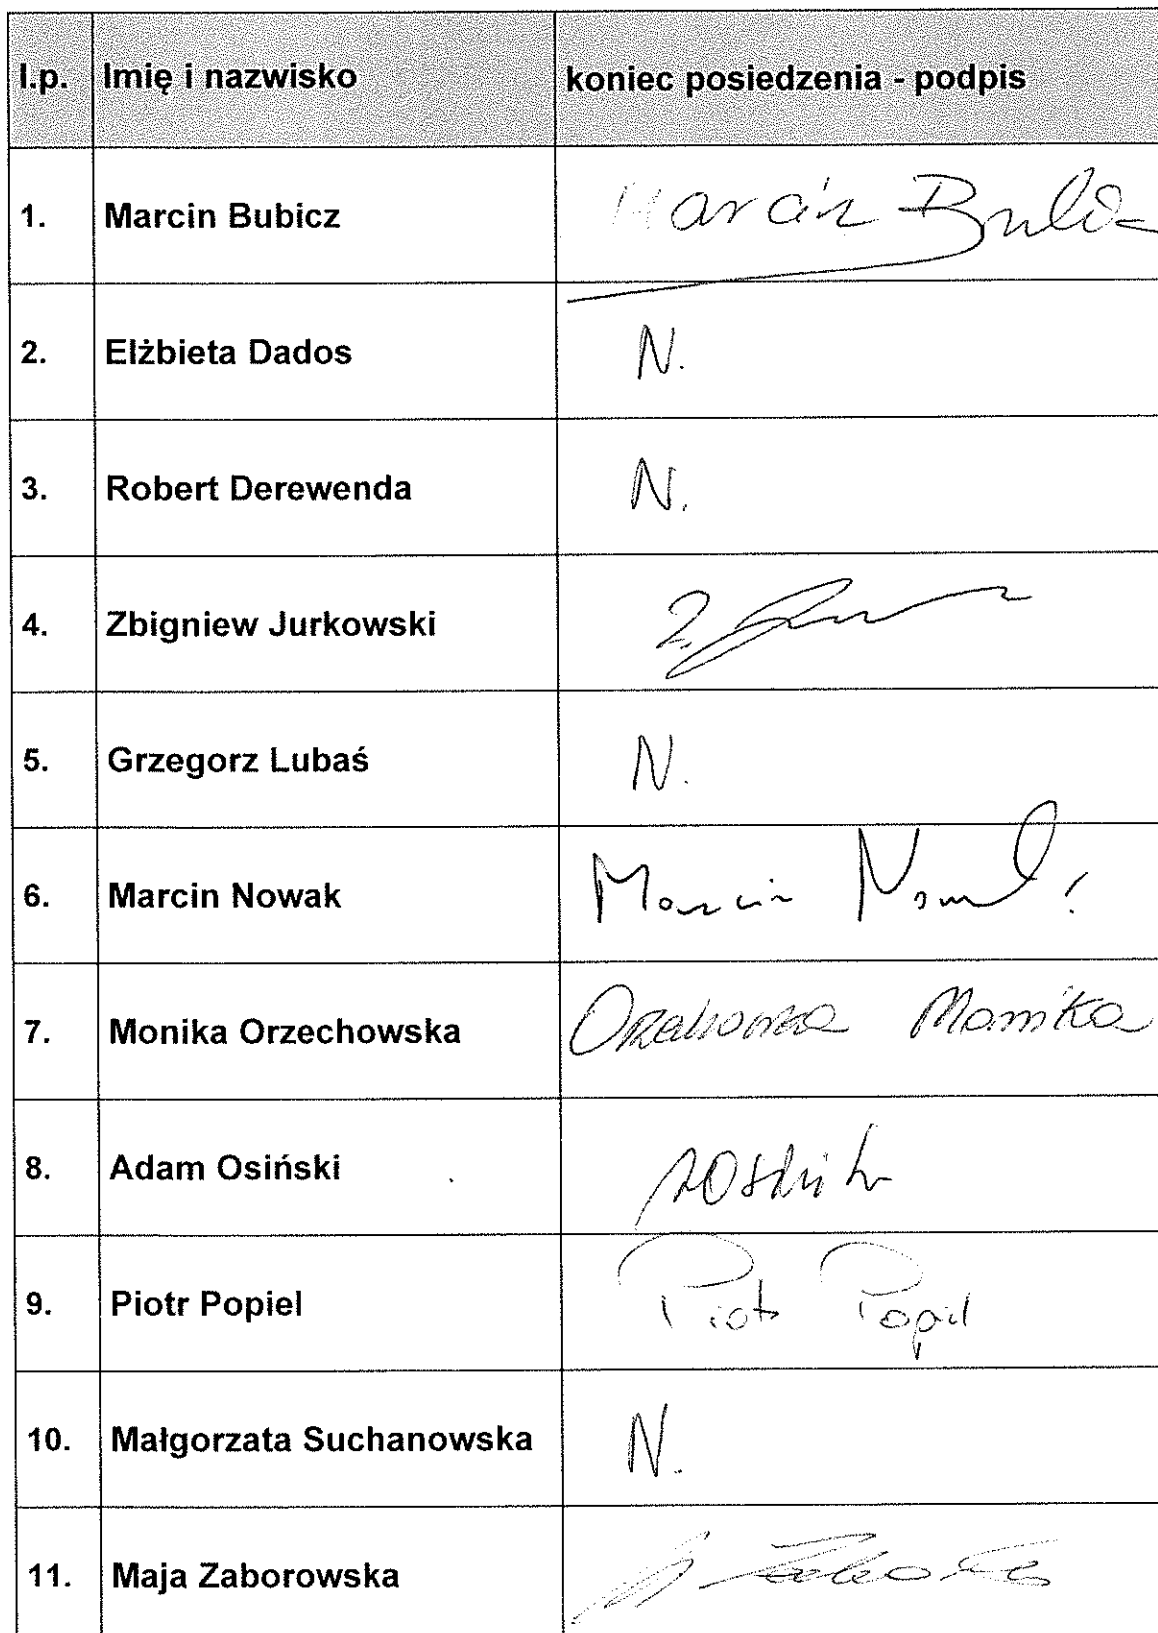 l.p. Imię i nazwisko koniec posiedzenia - podpis
1. Marcin Bubicz Marcin
2. Elżbieta Dados N.
3. Robert Derewenda N.
4. Zbigniew Jurkowski
5. Grzegorz Lubaś N.
6. Marcin Nowak Marcin Nowak
7. Monika Orzechowska Orzechowska Monika
8. Adam Osiński
9. Piotr Popiel Piotr Popiel
10. Małgorzata Suchanowska N.
11. Maja Zaborowska